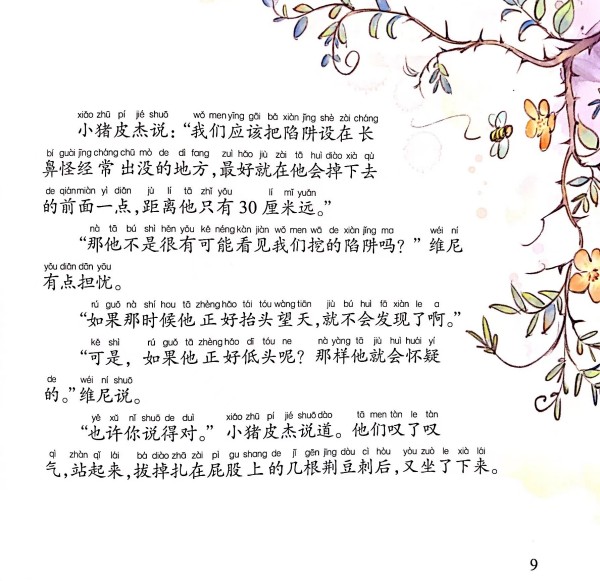 xiǎo zhū pí jié shuō wǒ men yīng gāi bǎ xiàn jǐng shè zài cháng
小猪皮杰说：“我们应该把陷阱设在长
bí guài jīng cháng chū mò de dì fang zuì hǎo jiù zài tā huì diào xià qù
鼻怪经常出没的地方，最好就在他会掉下去
de qián miàn yì diǎn jù lí tā zhǐ yǒu lí mǐ yuǎn
的前面一点，距离他只有 30 厘米远。”
nà tā bú shì hěn yǒu kě néng kàn jiàn wǒ men wā de xiàn jǐng ma wéi ní
“那他不是很有可能看见我们挖的陷阱吗？”维尼
yǒu diǎn dān yōu
有点担忧。
rú guǒ nà shí hou tā zhèng hǎo tái tóu wàng tiān jiù bú huì fā xiàn le a
“如果那时候他正好抬头望天，就不会发现了啊。”
kě shì rú guǒ tā zhèng hǎo dī tóu ne nà yàng tā jiù huì huái yí
“可是，如果他正好低头呢？那样他就会怀疑
de wéi ní shuō
的。”维尼说。
yě xǔ nǐ shuō de duì xiǎo zhū pí jié shuō dào tā men tàn le tàn
“也许你说得对。”小猪皮杰说道。他们叹了叹
qì zhàn qǐ lái bá diào zhā zài pì gu shang de jǐ gēn jīng dòu cì hòu yòu zuò le xià lái
气，站起来，拔掉扎在屁股上的几根荆豆刺后，又坐了下来。
9